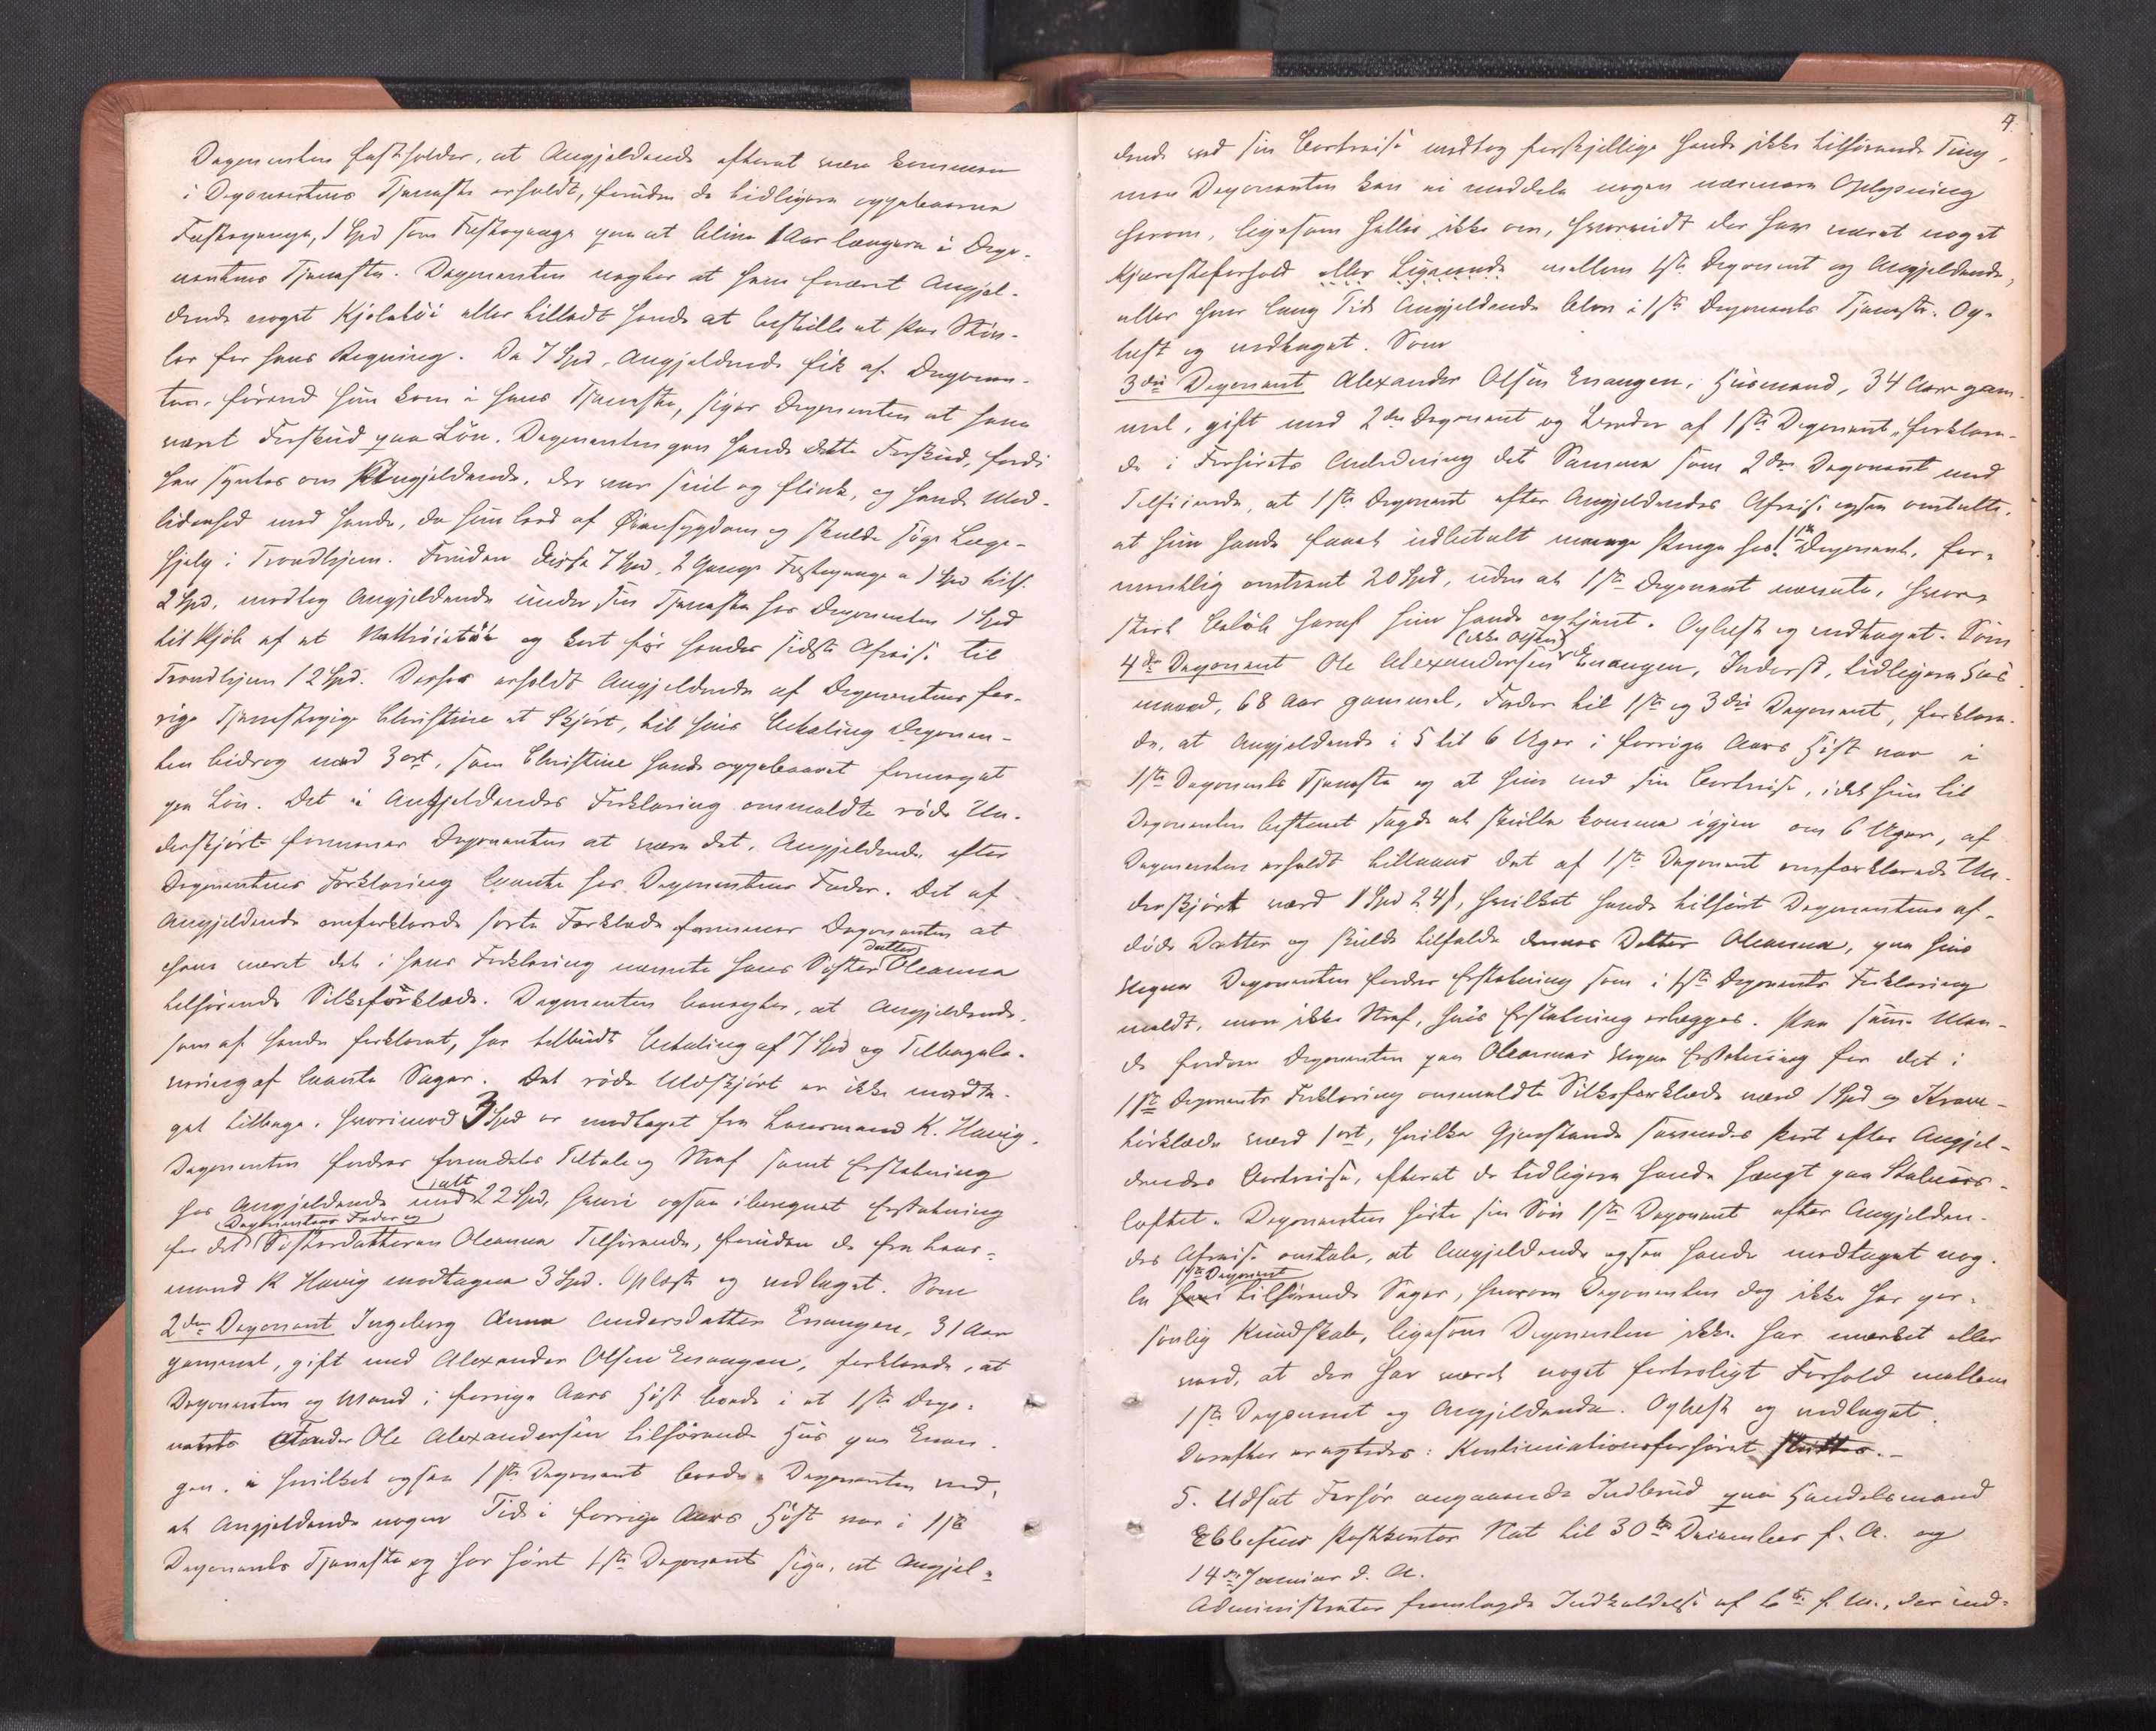 Deponenten fastholder, at Angjeldende efterat være kommen
i Deponentens Tjeneste erholdt, foruden de tidligere oppebaarne
Fæstepenge, 1 Spd som Fæstepenge paa at blive 1 Aar længere i Depo-
nentens Tjeneste. Deponenten negter at have foræret Angjel-
dende noget Kjoletøi eller tilladt hende at bestille et Par Støv-
ler for hans Regning. De 7 Spd, Angjeldende fik af Deponen-
ten, førend hun kom i hans Tjeneste, siger Deponenten at have
været Forskud paa Løn. Deponenten gav hende dette Forskud, fordi
han syntes om Angjeldende, der var snil og flink, og havde Med-
lidenhed med hende, da hun leed af Øiensygdom og skulde søge Læge-
hjælp i Trondhjem. Foruden disse 7 Spd, 2 Gange Fæstepenge a 1 Spd tils.
2 Spd, modtog Angjeldende under sin Tjeneste hos Deponenten 1 Spd
til Kjøb af et Nattrøietøi og kort før hendes sidste Afreise til
Trondhjem 12 Spd. Derhos erholdt Angjeldende af Deponentens for-
rige Tjenestepige Christine et Skjørt, til hvis Betaling Deponen-
ten bidrog med 3 ort, som Christine havde oppebaaret formeget
paa Løn. Det i Angjeldendes Forklaring ommeldte røde Un-
derskjørt formener Deponenten at være det, Angjeldende efter
Deponentens Forklaring laante hos Deponentens Fader. Det af
Angjeldende omforklarede sorte Forklæde formener Deponenten at
have været det i hans Forklaring nævnte hans Søster datter Oleanna
tilhørende Silkeforklæde. Deponenten benegter, at Angjeldende,
som af hende forklaret, har tilbudt Betaling af 7 Spd og Tilbagele-
vering af laante Sager. Det røde Uldskjørt er ikke modta-
get tilbage, hvorimod 3 Spd er modtaget fra Lensmand K. Havig.
Deponenten fordrer fremdeles Tiltale og Straf samt Erstatning
hos Angjeldende ialt med 22 Spd, hvori ogsaa iberegnet Erstatning
for det Deponentens Fader og Søsterdatteren Oleanna Tilhørende, foruden de fra Lens-
mand K Havig modtagne 3 Spd. Oplæst og vedtaget. Som
2den Deponent Ingeborg Anna Andersdatter Enangen, 31 Aar
gammel, gift med Alexander Olsen Enangen, forklarede, at
Deponenten og Mand i forrige Aars Høst boede i et 1ste Depo-
nents Fader Ole Alexandersen tilhørende Hus paa Enan-
gen, i hvilket ogsaa 1ste Deponent boede. Deponenten ved,
at Angjeldende nogen Tid i forrige Aars Høst var i 1ste
Deponents Tjeneste og har hørt 1ste Deponent sige, at Angjel-
4.
dende ved sin Bortreise medtog forskjellige hende ikke tilhørende Ting,
men Deponenten kan ei meddele nogen nærmere Oplysning
herom, ligesom heller ikke om, hvorvidt der har været noget
Kjæresteforhold eller Lignende mellem 1ste Deponent og Angjeldende,
eller hvor lang Tid Angjeldende blev i 1ste Deponents Tjeneste. Op-
læst og vedtaget. Som
3die Deponent Alexander Olsen Enangen, Husmand, 34 Aar gam-
mel, gift med 2den Deponent og Broder af 1ste Deponent, forklare-
de i Forhørets Anledning det Samme som 2den Deponent med
Tilføiende, at 1ste Deponent efter Angjeldendes Afreise ogsaa omtalte,
at hun havde faaet udbetalt mange Penge hos 1ste Deponent, for-
mentlig omtrent 20 Spd, uden at 1ste Deponent nævnte, hvor
stort Beløb heraf hun havde optjent. Oplæst og vedtaget. Som
4de Deponent Ole Alexandersen (ikke Olsen) Enangen, Inderst, tidligere Hus-
mand, 68 Aar gammel, Fader til 1ste og 3die Deponent, forklare-
de, at Angjeldende i 5 til 6 Uger i forrige Aars Høst var i
1ste Deponents Tjeneste og at hun ved sin Bortreise, idet hun til
Deponenten bestemt sagde at skulle komme igjen om 6 Uger, af
Deponenten erholdt tillaans det af 1ste Deponent omforklarede Un-
derskjørt værd 1 Spd 24 s, hvilket havde tilhørt Deponentens af-
døde Datter og skulde tilfalde dennes Datter Oleanna, paa hvis
Vegne Deponenten fordrer Erstatning som i 1ste Deponents Forklaring
meldt, men ikke Straf, hvis Erstatning erlægges. Paa samme Maa-
de fordrer Deponenten paa Oleannas Vegne Erstatning for det i
1ste Deponents Forklaring ommeldte Silkeforklæde værd 1 Spd og Krave-
tørklæde værd 1 ort, hvilke Gjenstande savnedes kort efter Angjel-
dendes Bortreise, efterat de tidligere havde hængt paa Stabuurs-
loftet. Deponenten hørte sin Søn 1ste Deponent efter Angjelden-
des Afreise omtale, at Angjeldende ogsaa havde medtaget nog-
le hans 1ste Deponent tilhørende Sager, hvorom Deponenten dog ikke har per-
sonlig Kundskab, ligesom Deponenten ikke har mærket eller
veed, at der har været noget fortroligt Forhold mellem
1ste Deponent og Angjeldende. Oplæst og vedtaget.
Derefter eragtedes: Kontinuationsforhøret sluttes.-
5. Udsat Forhør angaaende Indbrud paa Handelsmand
Ebbesens Postkontor Nat til 30te December f. A. og
14de Januar d. A.
Administrator fremlagde Indkaldelse af 6te f. M., der ind-